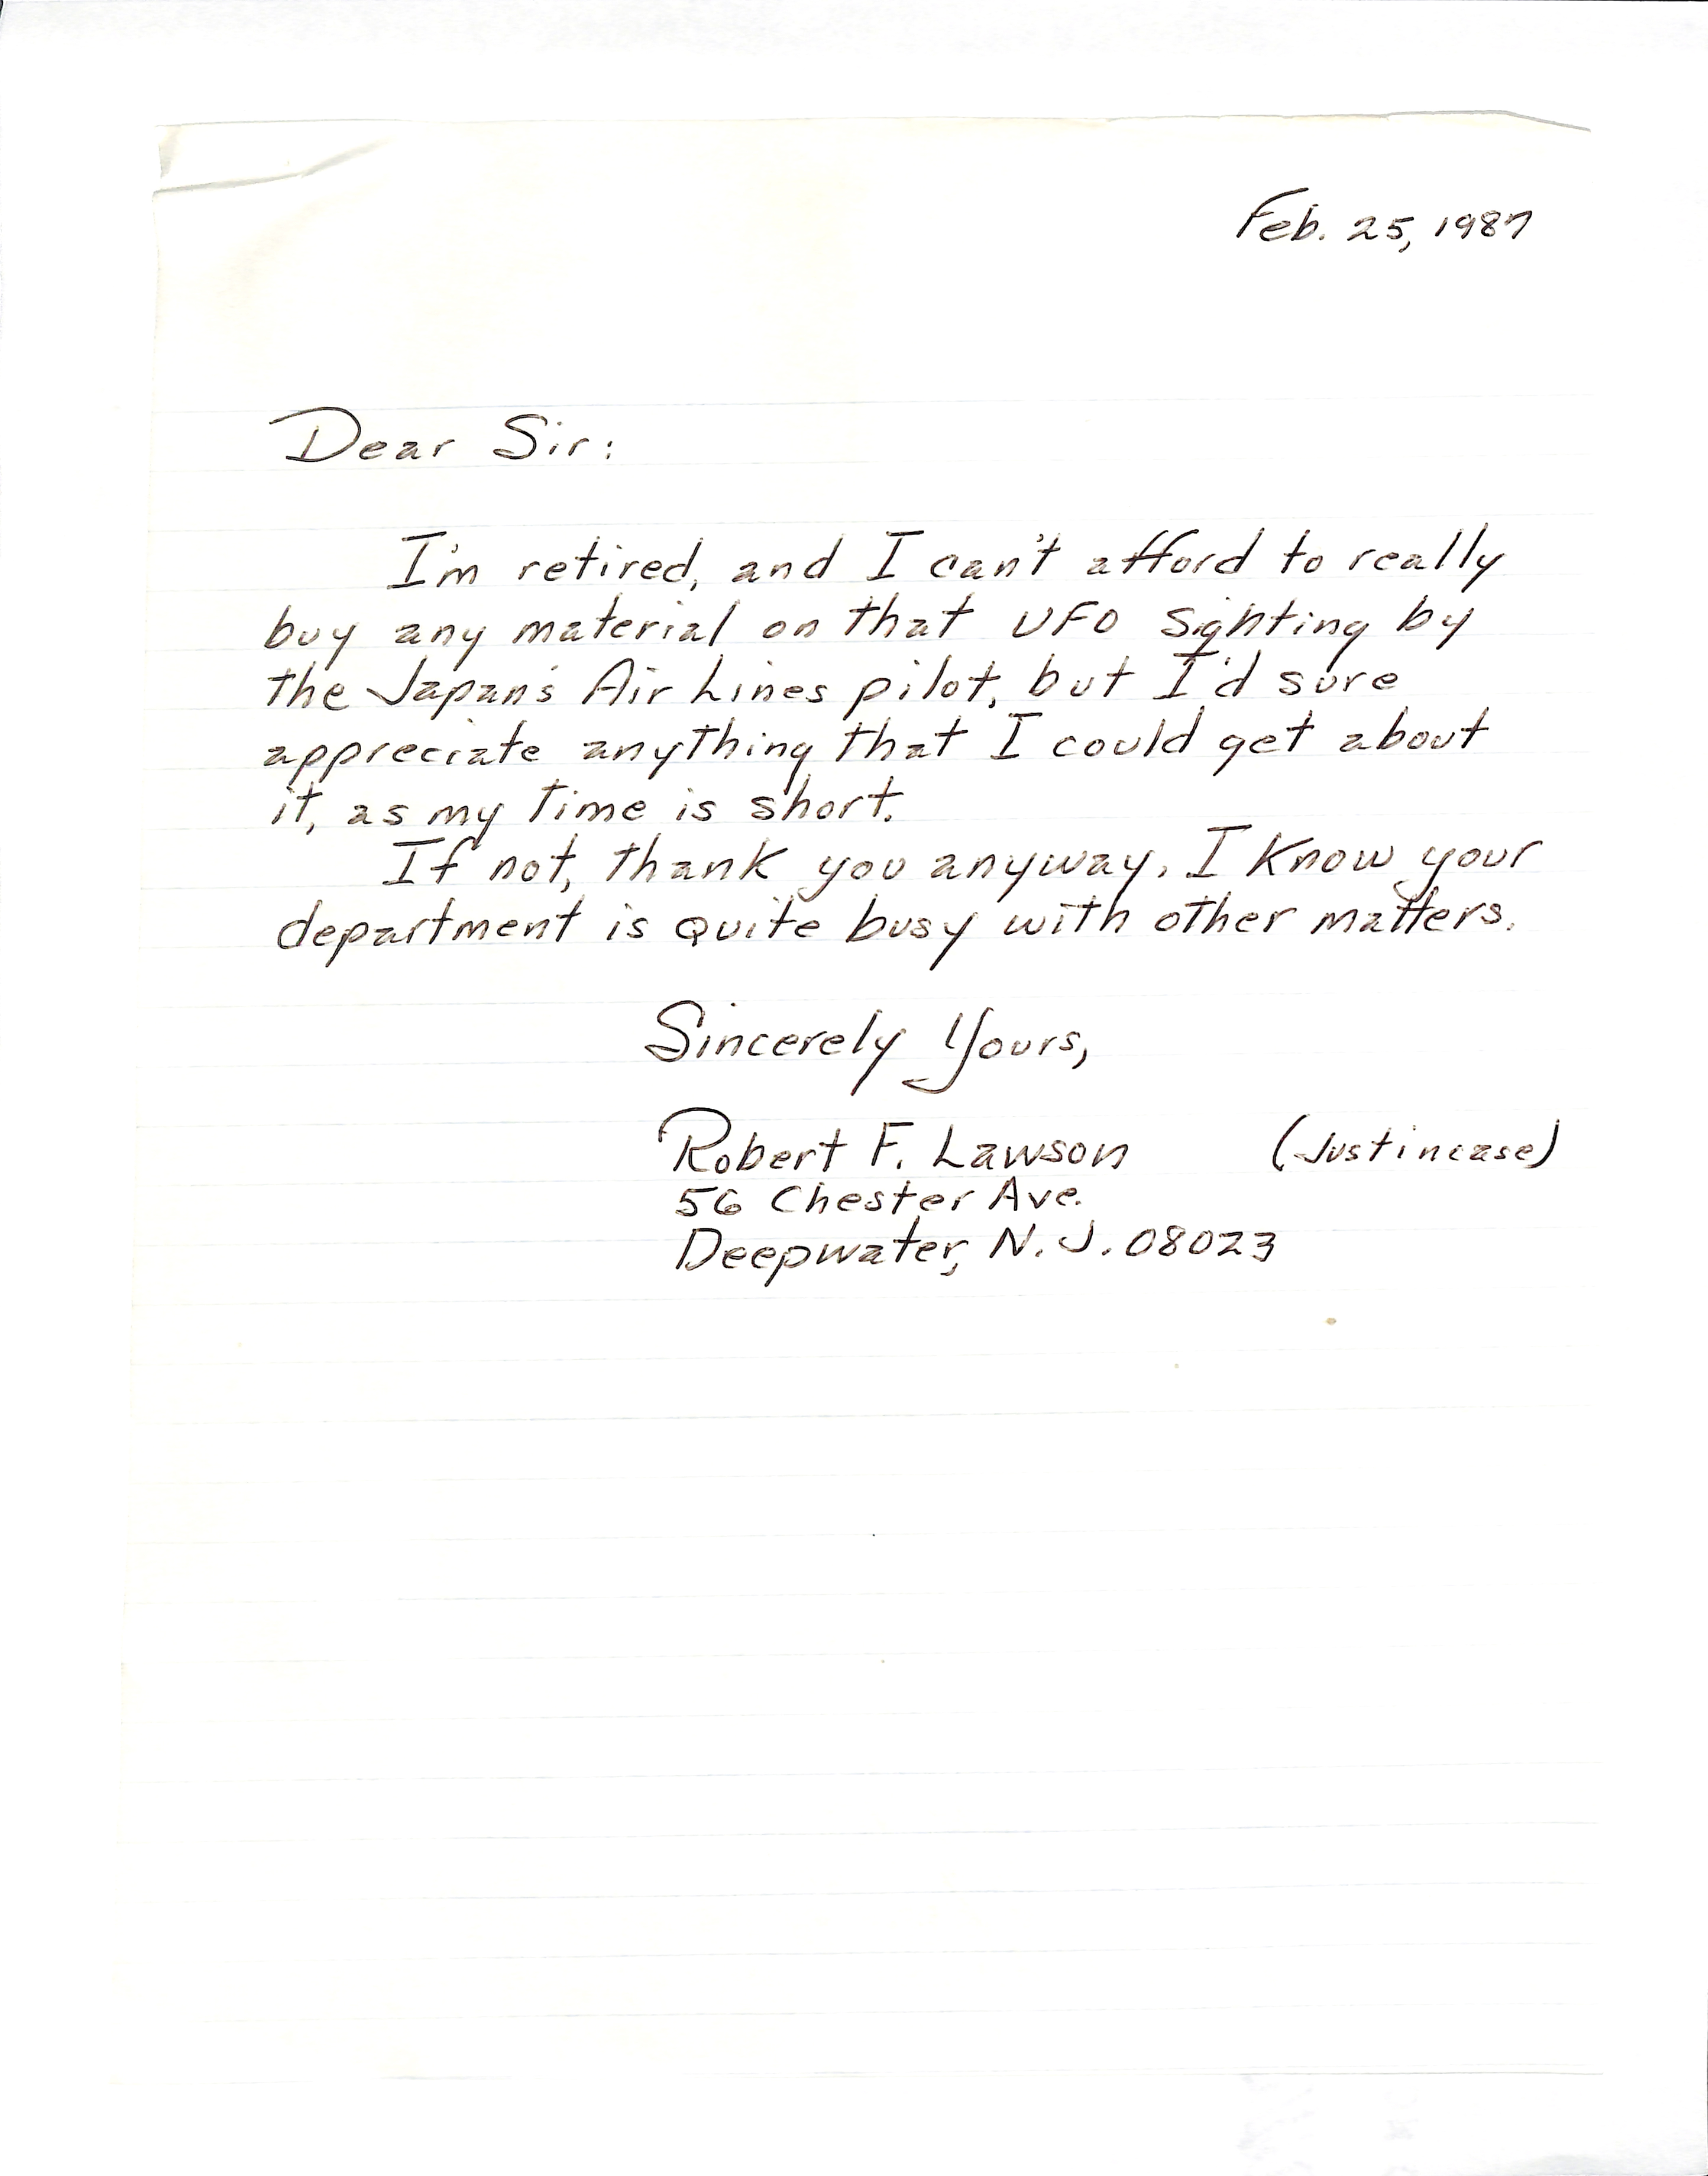 Feb. 25, 1987
Dear Sir:
I'm retired, and I can't afford to really
buy any material on that UFO sighting by
the Japan's Air Lines pilot, but I'd sure
appreciate anything that I could get about
it, as my time is short.
If not, thank you anyway, I know your
department is quite busy with other matters.
Sincerely Yours,
Robert F. Lawson (Just incase)
56 Chester Ave.
Deepwater, N.J. 08023